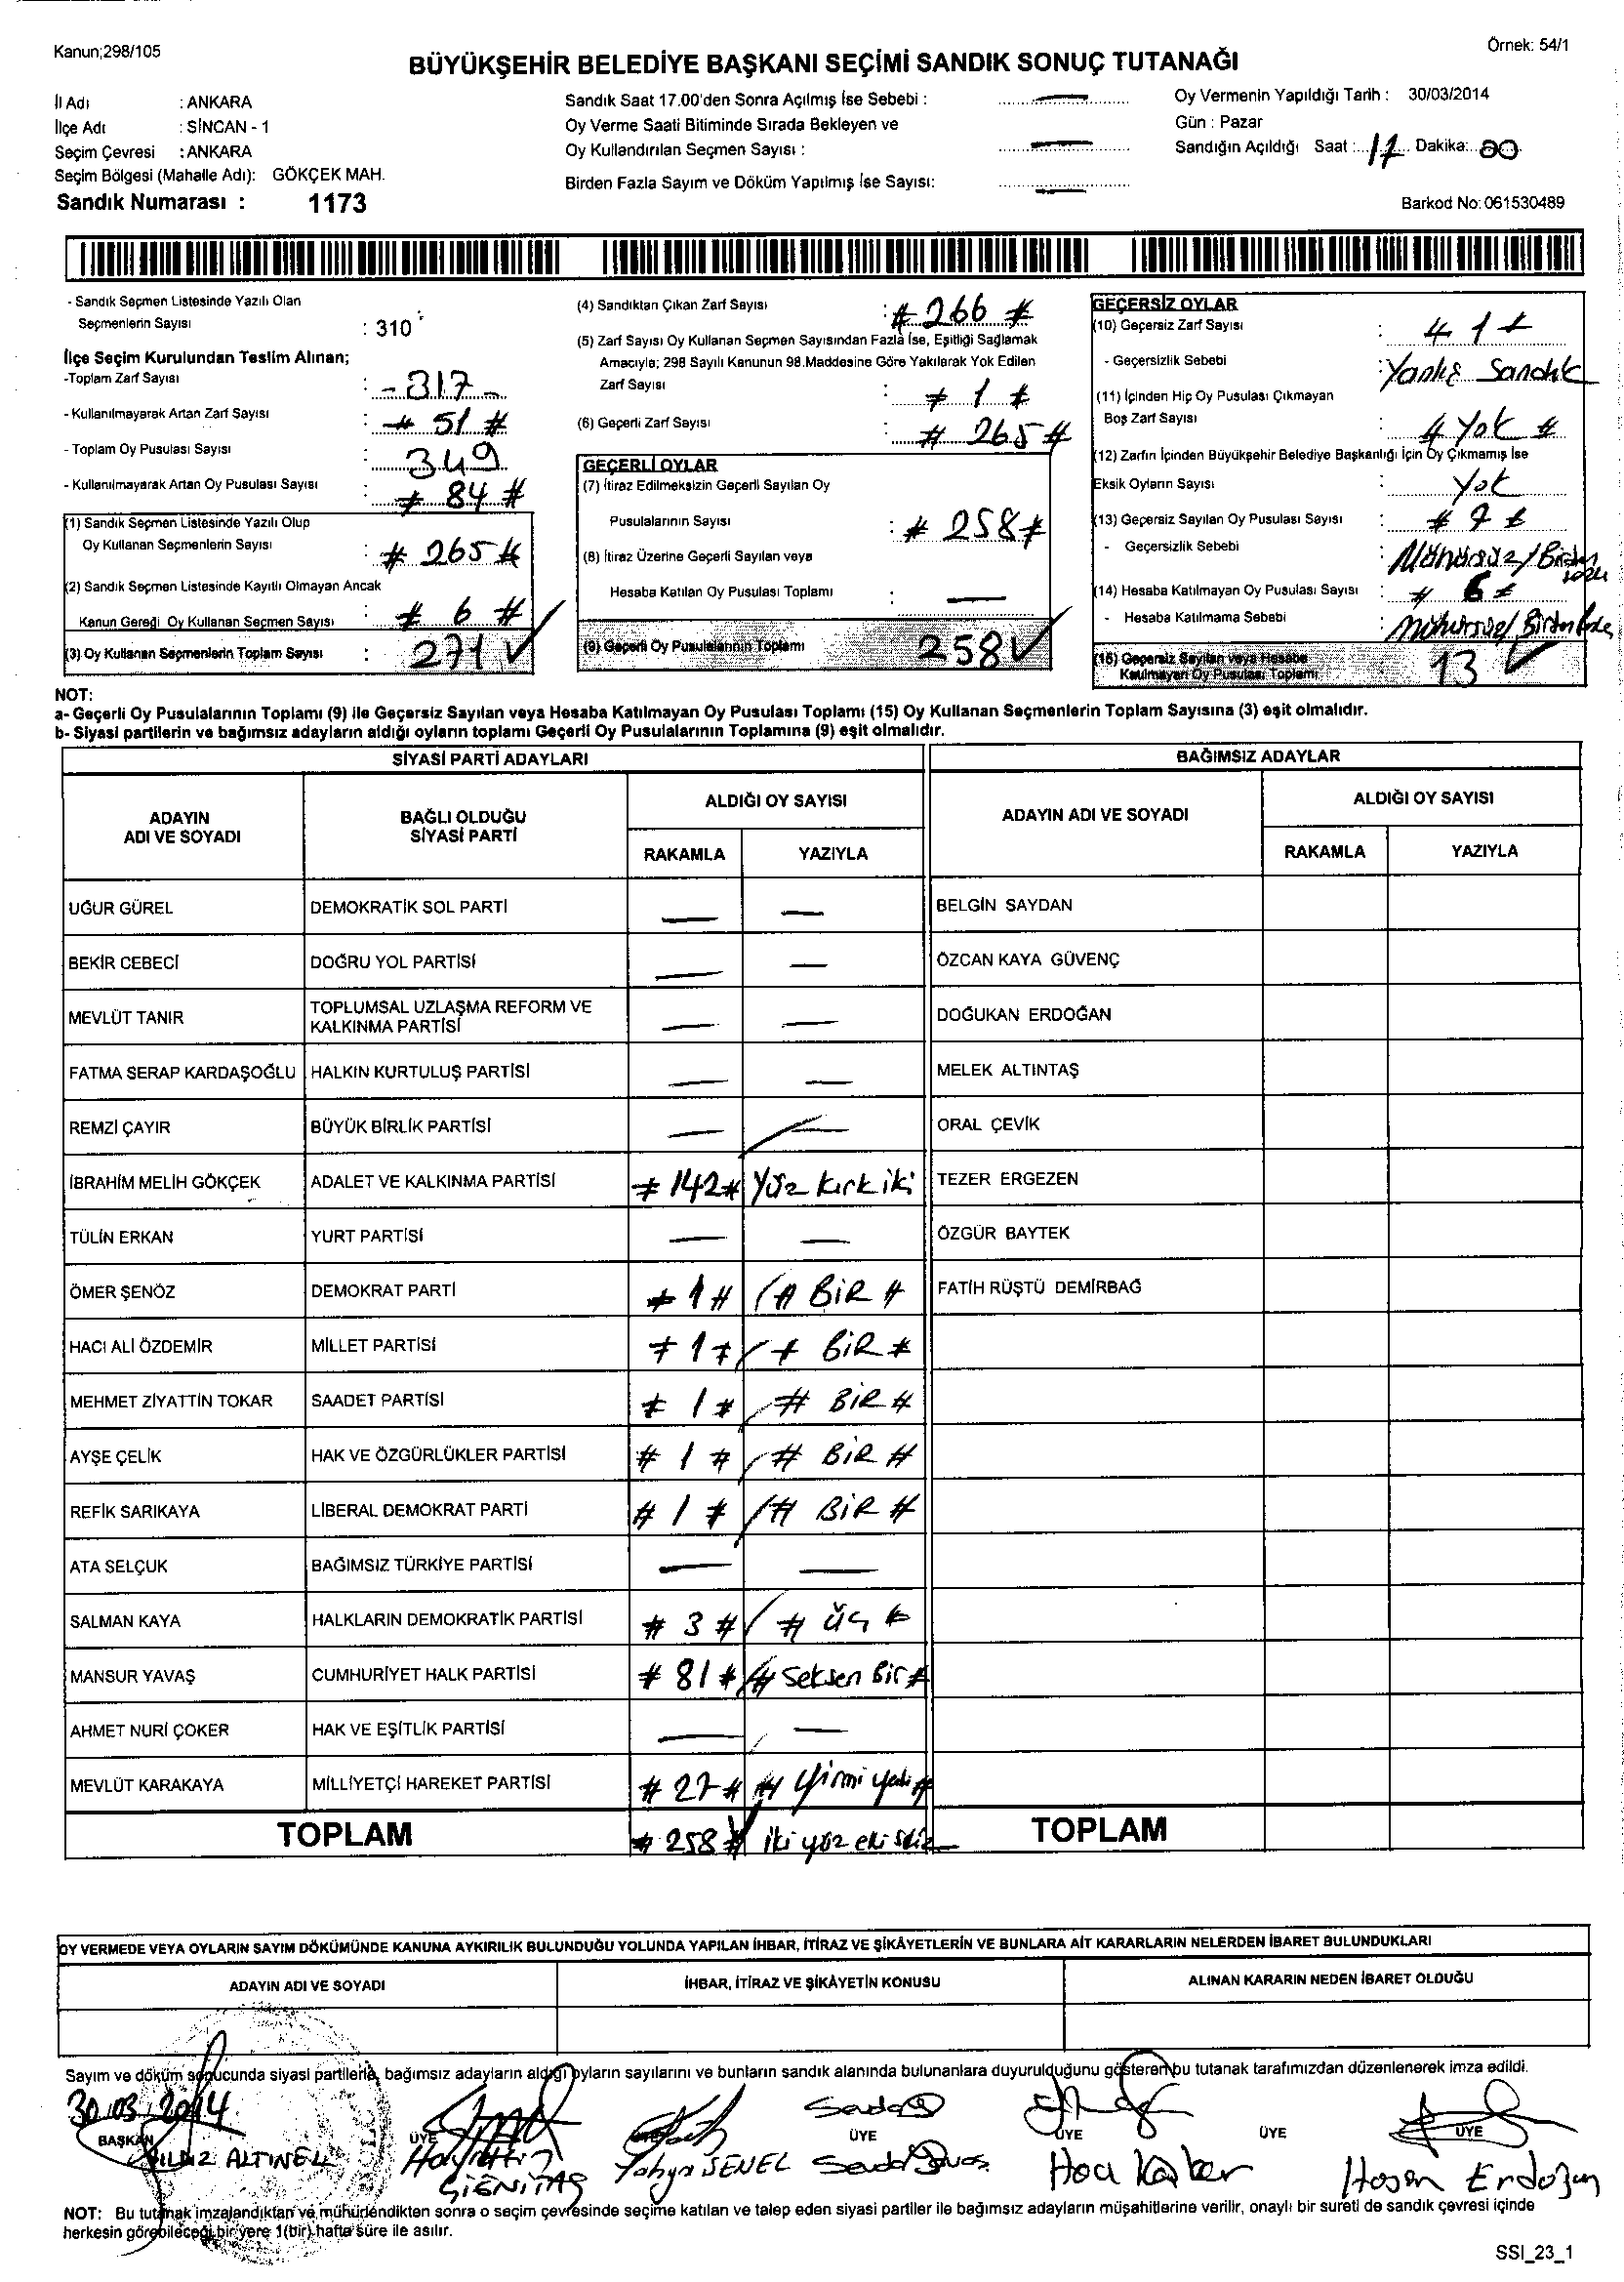 Kanun;298/105
Örnek: 54/1
BÜYÜKŞEHİR BELEDİYE BAŞKANI SEÇİMİ SANDIK SONUÇ TUTANAĞI
İl Adı : ANKARA
İlçe Adı : SİNCAN - 1
Seçim Çevresi : ANKARA
Seçim Bölgesi (Mahalle Adı): GÖKÇEK MAH.
Sandık Numarası : 1173
Sandık Saat 17.00'den Sonra Açılmış İse Sebebi :
Oy Verme Saati Bitiminde Sırada Bekleyen ve
Oy Kullandırılan Seçmen Sayısı :
Birden Fazla Sayım ve Döküm Yapılmış İse Sayısı:
Oy Vermenin Yapıldığı Tarih : 30/03/2014
Gün : Pazar
Sandığın Açıldığı Saat : 17 Dakika: 00
Barkod No: 061530489
- Sandık Seçmen Listesinde Yazılı Olan
Seçmenlerin Sayısı : 310
İlçe Seçim Kurulundan Teslim Alınan;
-Toplam Zarf Sayısı : - 317 -
- Kullanılmayarak Artan Zarf Sayısı : # 51 #
- Toplam Oy Pusulası Sayısı : 349
- Kullanılmayarak Artan Oy Pusulası Sayısı : # 84 #
(1) Sandık Seçmen Listesinde Yazılı Olup
Oy Kullanan Seçmenlerin Sayısı : # 265 #
(2) Sandık Seçmen Listesinde Kayıtlı Olmayan Ancak
Kanun Gereği Oy Kullanan Seçmen Sayısı : # 6 #
(3) Oy Kullanan Seçmenlerin Toplam Sayısı : 271 ✓
(4) Sandıktan Çıkan Zarf Sayısı : # 266 #
(5) Zarf Sayısı Oy Kullanan Seçmen Sayısından Fazla İse, Eşitliği Sağlamak
Amacıyla; 298 Sayılı Kanunun 98.Maddesine Göre Yakılarak Yok Edilen
Zarf Sayısı : # 1 #
(6) Geçerli Zarf Sayısı : # 265 #
GEÇERLİ OYLAR
(7) İtiraz Edilmeksizin Geçerli Sayılan Oy
Pusulalarının Sayısı : # 258 #
(8) İtiraz Üzerine Geçerli Sayılan veya
Hesaba Katılan Oy Pusulası Toplamı :
(9) Geçerli Oy Pusulalarının Toplamı 258 ✓
GEÇERSİZ OYLAR
(10) Geçersiz Zarf Sayısı : # 1 #
- Geçersizlik Sebebi : Yanlış Sandık
(11) İçinden Hiç Oy Pusulası Çıkmayan
Boş Zarf Sayısı : # Yok #
(12) Zarfın İçinden Büyükşehir Belediye Başkanlığı İçin Oy Çıkmamış İse
Eksik Oyların Sayısı : Yok
(13) Geçersiz Sayılan Oy Pusulası Sayısı : # 7 #
- Geçersizlik Sebebi :
(14) Hesaba Katılmayan Oy Pusulası Sayısı : # 6 #
- Hesaba Katılmama Sebebi :
(15) Geçersiz Sayılan veya Hesaba
Katılmayan Oy Pusulası Toplamı 13 ✓
NOT:
a- Geçerli Oy Pusulalarının Toplamı (9) ile Geçersiz Sayılan veya Hesaba Katılmayan Oy Pusulası Toplamı (15) Oy Kullanan Seçmenlerin Toplam Sayısına (3) eşit olmalıdır.
b- Siyasi partilerin ve bağımsız adayların aldığı oyların toplamı Geçerli Oy Pusulalarının Toplamına (9) eşit olmalıdır.
SİYASİ PARTİ ADAYLARI
ADAYIN
ADI VE SOYADI
BAĞLI OLDUĞU
SİYASİ PARTİ
ALDIĞI OY SAYISI
RAKAMLA YAZIYLA
UĞUR GÜREL DEMOKRATİK SOL PARTİ — —
BEKİR CEBECİ DOĞRU YOL PARTİSİ — —
MEVLÜT TANIR TOPLUMSAL UZLAŞMA REFORM VE
KALKINMA PARTİSİ — —
FATMA SERAP KARDAŞOĞLU HALKIN KURTULUŞ PARTİSİ — —
REMZİ ÇAYIR BÜYÜK BİRLİK PARTİSİ — —
İBRAHİM MELİH GÖKÇEK ADALET VE KALKINMA PARTİSİ # 142 # Yüz kırk iki
TÜLİN ERKAN YURT PARTİSİ — —
ÖMER ŞENÖZ DEMOKRAT PARTİ # 1 # # BİR #
HACI ALİ ÖZDEMİR MİLLET PARTİSİ # 1 # # BİR #
MEHMET ZİYATTİN TOKAR SAADET PARTİSİ # 1 # # BİR #
AYŞE ÇELİK HAK VE ÖZGÜRLÜKLER PARTİSİ # 1 # # BİR #
REFİK SARIKAYA LİBERAL DEMOKRAT PARTİ # 1 # # BİR #
ATA SELÇUK BAĞIMSIZ TÜRKİYE PARTİSİ — —
SALMAN KAYA HALKLARIN DEMOKRATİK PARTİSİ # 3 # # ÜÇ #
MANSUR YAVAŞ CUMHURİYET HALK PARTİSİ # 81 # # Seksen Bir #
AHMET NURİ ÇOKER HAK VE EŞİTLİK PARTİSİ — —
MEVLÜT KARAKAYA MİLLİYETÇİ HAREKET PARTİSİ # 27 # # Yirmi yedi #
TOPLAM # 258 # iki yüz
BAĞIMSIZ ADAYLAR
ADAYIN ADI VE SOYADI
ALDIĞI OY SAYISI
RAKAMLA YAZIYLA
BELGİN SAYDAN
ÖZCAN KAYA GÜVENÇ
DOĞUKAN ERDOĞAN
MELEK ALTINTAŞ
ORAL ÇEVİK
TEZER ERGEZEN
ÖZGÜR BAYTEK
FATİH RÜŞTÜ DEMİRBAĞ
TOPLAM
OY VERMEDE VEYA OYLARIN SAYIM DÖKÜMÜNDE KANUNA AYKIRILIK BULUNDUĞU YOLUNDA YAPILAN İHBAR, İTİRAZ VE ŞİKÂYETLERİN VE BUNLARA AİT KARARLARIN NELERDEN İBARET BULUNDUKLARI
ADAYIN ADI VE SOYADI
İHBAR, İTİRAZ VE ŞİKÂYETİN KONUSU
ALINAN KARARIN NEDEN İBARET OLDUĞU
Sayım ve döküm sonucunda siyasi partilerle, bağımsız adayların aldığı oyların sayılarını ve bunların sandık alanında bulunanlara duyurulduğunu gösteren bu tutanak tarafımızdan düzenlenerek imza edildi.
30/03/2014
BAŞKAN ÜYE ÜYE ÜYE ÜYE ÜYE
YILDIZ ALTINEL Yahya ŞENEL Hasan Erdoğan
NOT: Bu tutanak imzalandıktan ve mühürlendikten sonra o seçim çevresinde seçime katılan ve talep eden siyasi partiler ile bağımsız adayların müşahitlerine verilir, onaylı bir sureti de sandık çevresi içinde
herkesin görebileceği bir yere 1(bir) hafta süre ile asılır.
SSI_23_1